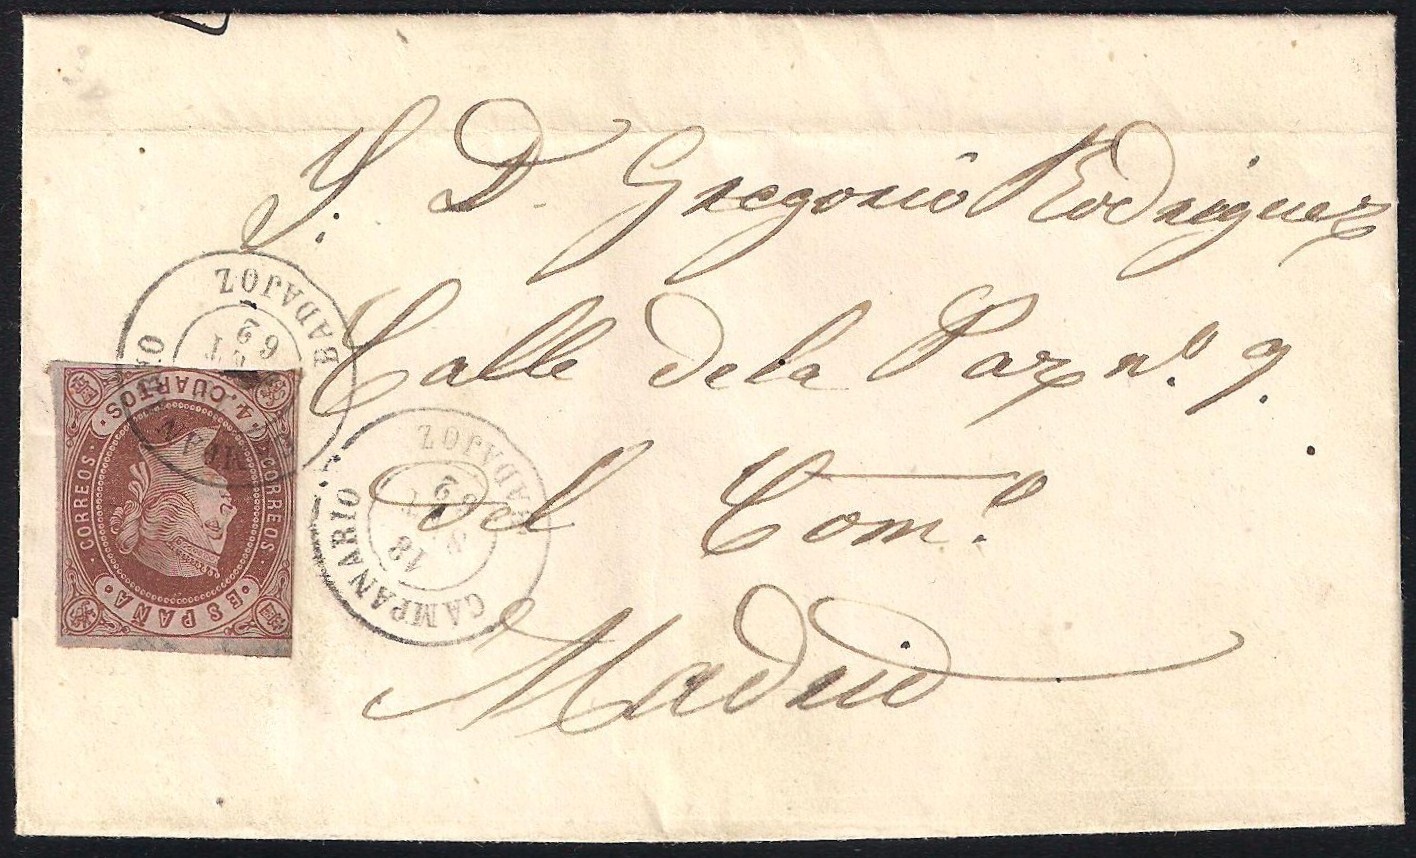 S. D. Gregorio Rodriguez
Calle de la Paz nº. 9.
del Comº.
Madrid
BADAJOZ
62
CAMPANARIO
BADAJOZ
62
18
CAMPANARIO
4. CUARTOS
CORREOS.
CORREOS
ESPAÑA